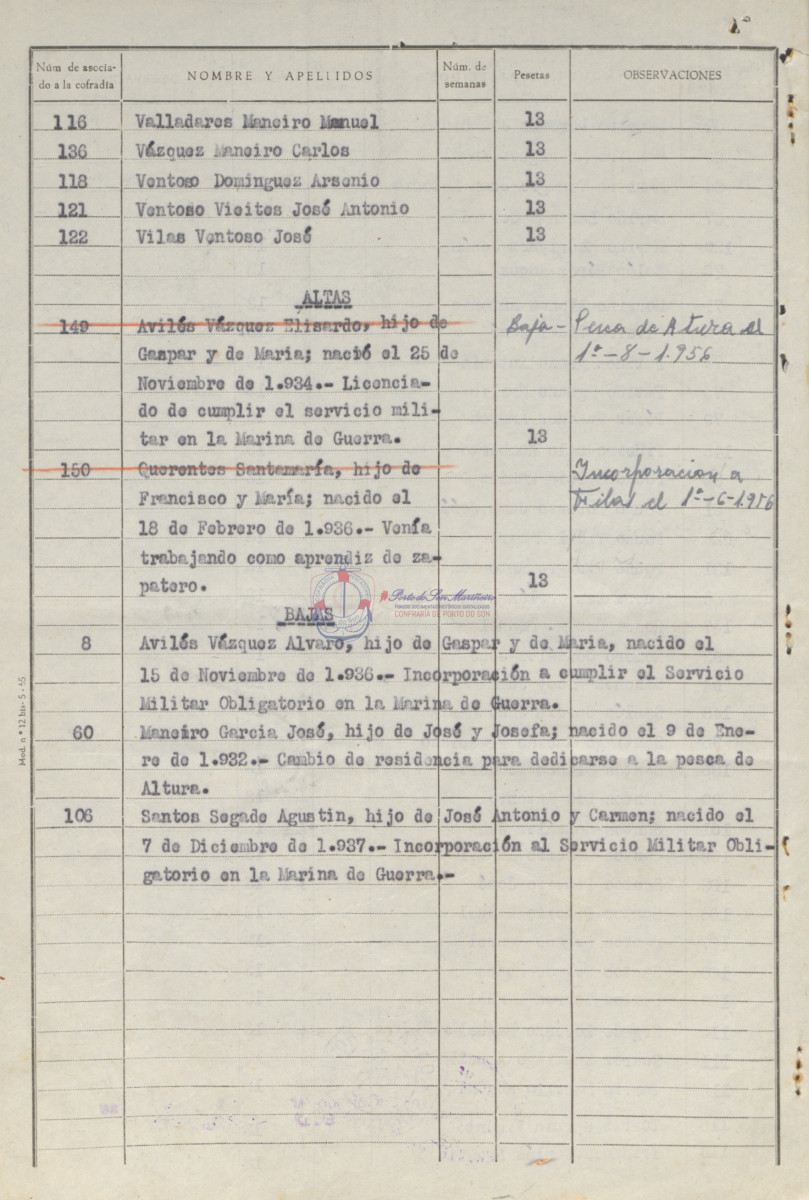 Núm de asocia-
do a la cofradía
NOMBRE Y APELLIDOS
Núm. de
semanas
Pesetas
OBSERVACIONES
116 Valladares Maneiro Manuel 13
136 Vázquez Maneiro Carlos 13
118 Ventoso Dominguez Arsenio 13
121 Ventoso Vieites José Antonio 13
122 Vilas Ventoso José 13
ALTAS
149 Avilés Vázquez Elisardo, hijo de Baja - Pesca de Altura el
Gaspar y de Maria; nació el 25 de 1º-8-1.956
Noviembre de 1.934.- Licencia-
do de cumplir el servicio mili-
tar en la Marina de Guerra. 13
150 Querentes Santamaría, hijo de Incorporacion a
Francisco y María; nacido el filas el 1º-6-1.956
18 de Febrero de 1.936.- Venía
trabajando como aprendiz de za-
patero. 13
#Porto do Son Mariñeiro
CONFRARÍA DE PORTO DO SON
BAJAS
8 Avilés Vázquez Alvaro, hijo de Gaspar y de Maria, nacido el
15 de Noviembre de 1.936.- Incorporación a cumplir el Servicio
Militar Obligatorio en la Marina de Guerra.
60 Maneiro Garcia José, hijo de José y Josefa; nacido el 9 de Ene-
re de 1.932.- Cambio de residencia para dedicarse a la pesca de
Altura.
106 Santos Segade Agustin, hijo de José Antonio y Carmen; nacido el
7 de Diciembre de 1.937.- Incorporación al Servicio Militar Obli-
gatorio en la Marina de Guerra.-
Mod. nº 12 bis - 5 - 55